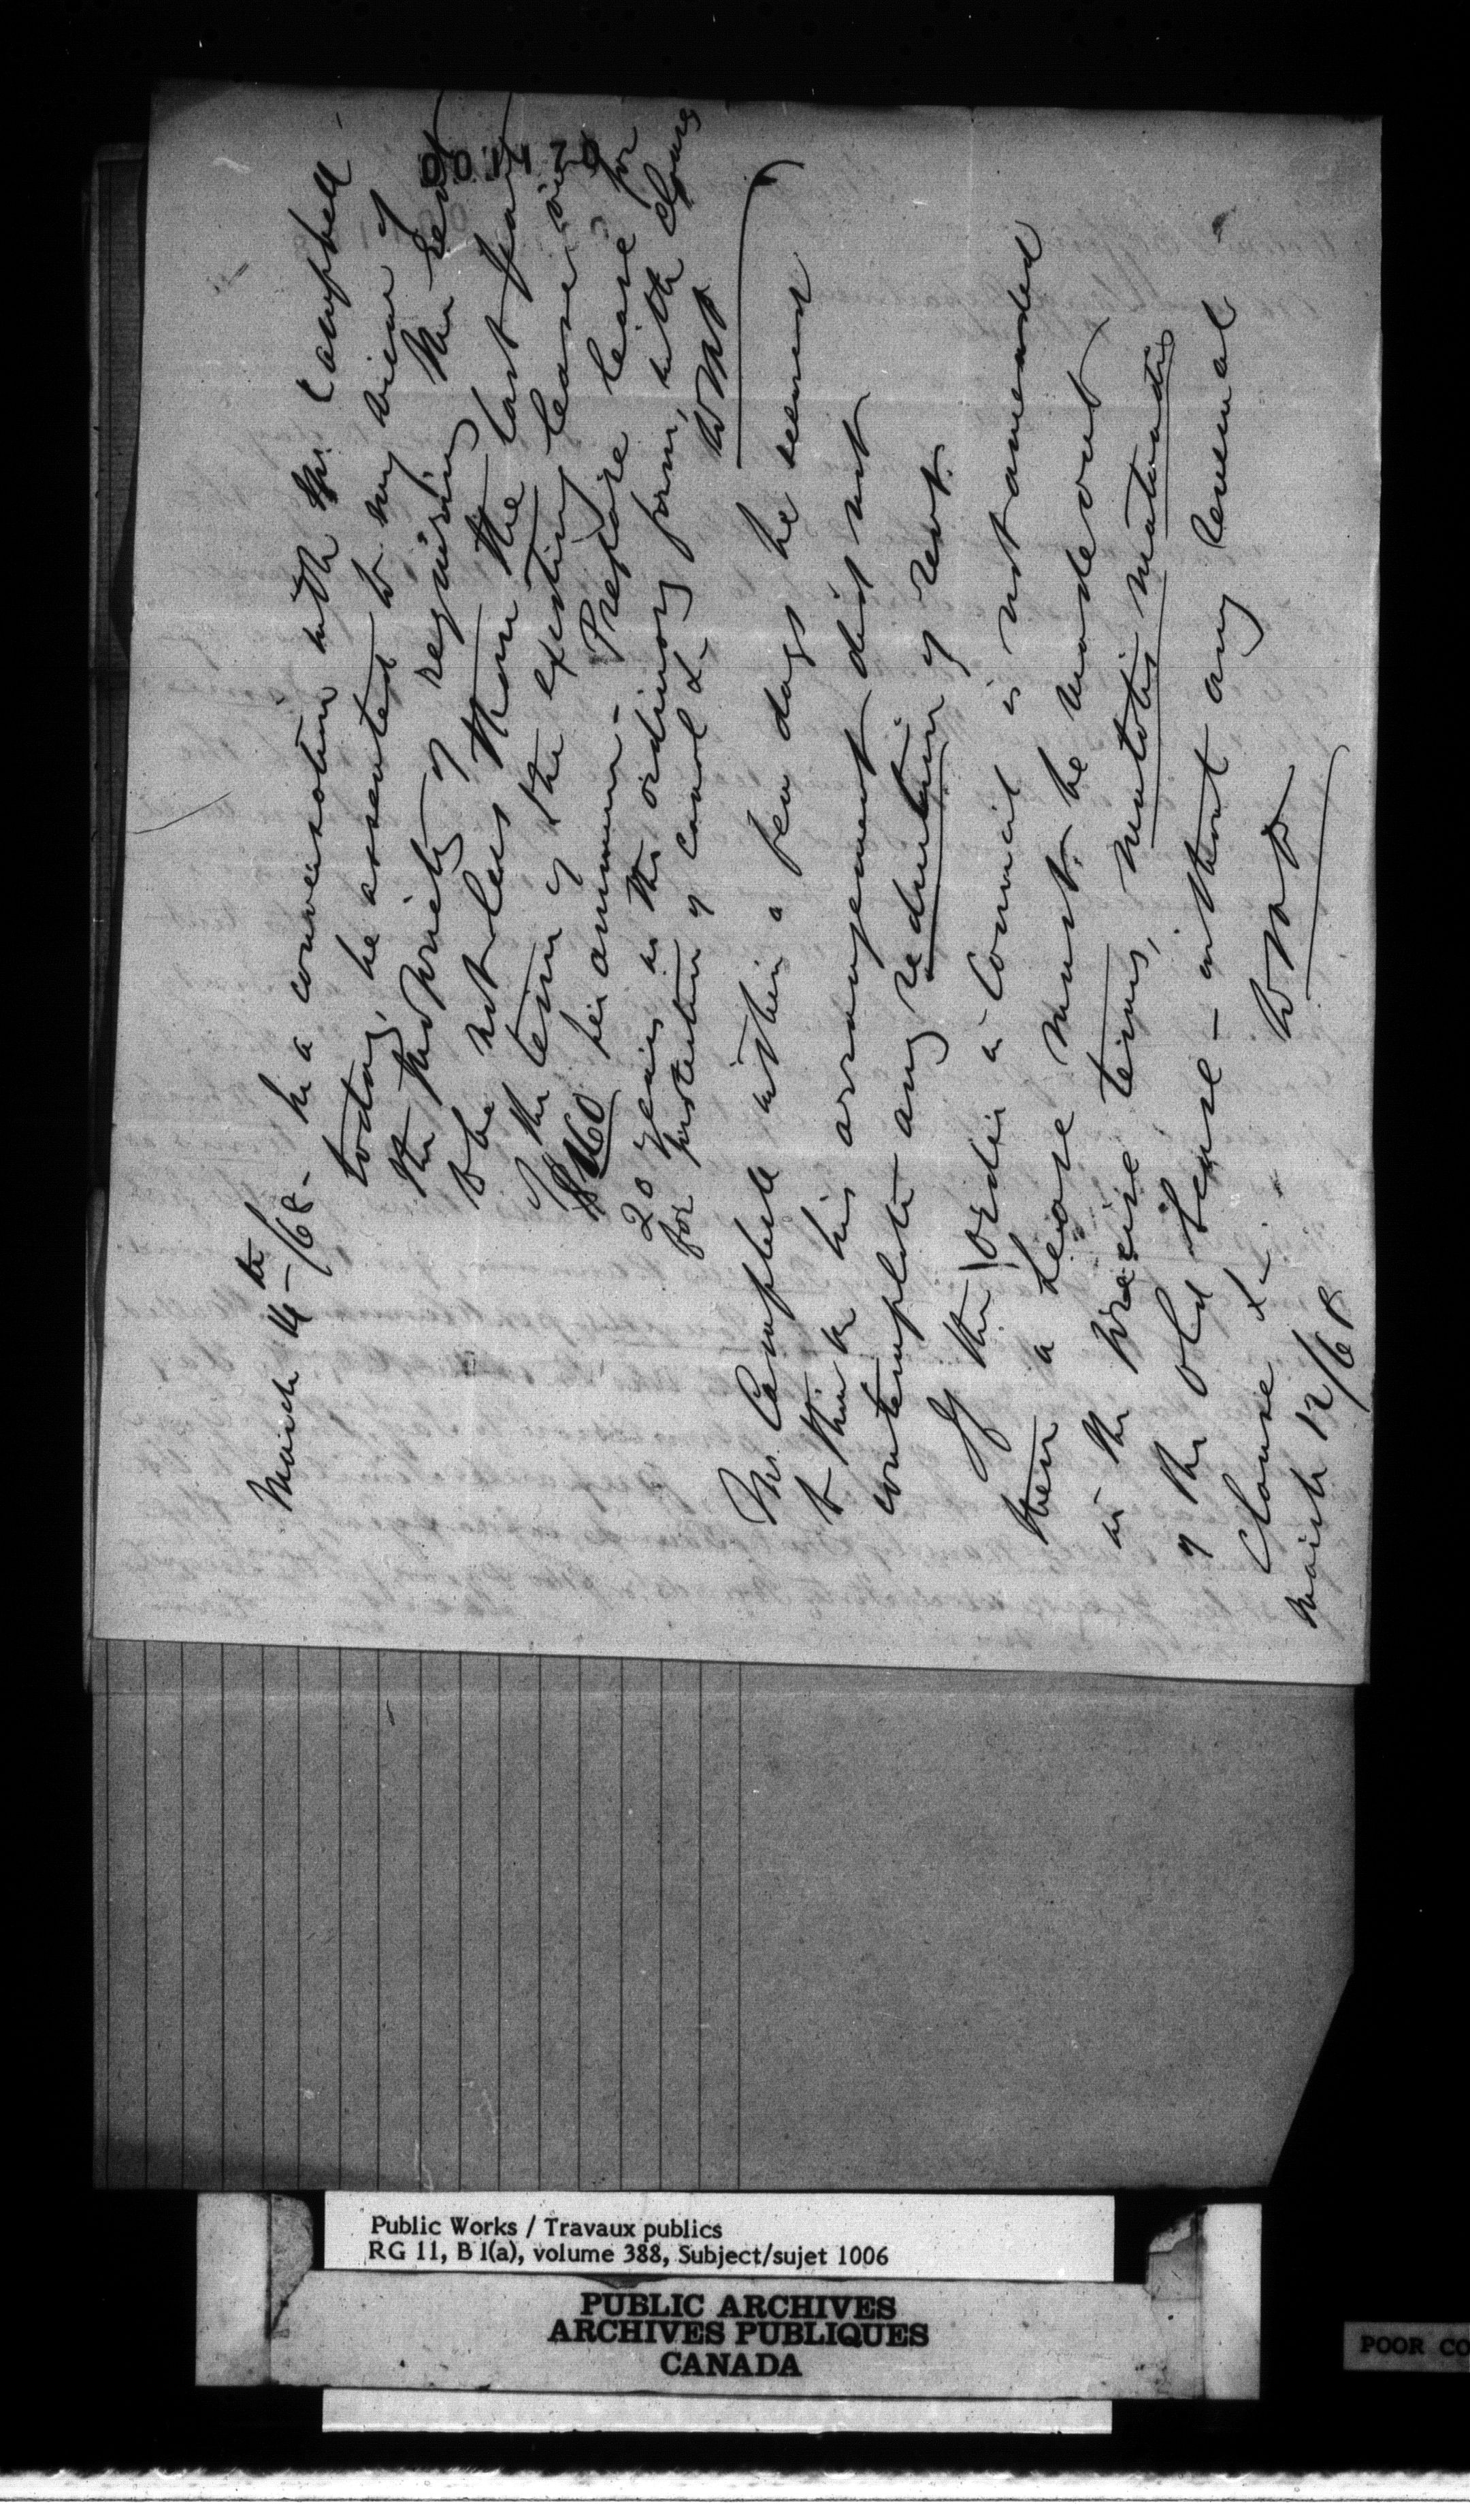 March 14th/68 - In a conversation with Mr. Campbell
today, he assented to my view of
the propriety of requiring the rent
to be not less than the last year
of the term of the existing lease viz
$160 per annum. - Prepare lease for
20 years in the ordinary form, with clauses
for protection of canal &c
Mr. Campbell within a few days he seemed
to think his arrangement did not
contemplate any reduction of rent.
If the order in Council is not amended
then a Lease must be made out
in the precise terms, mutatis mutandis
of the old lease - without any renewal
Clause &c
March 12/68
001470
Public Works / Travaux publics
RG 11, B 1(a), volume 388, Subject/sujet 1006
PUBLIC ARCHIVES
ARCHIVES PUBLIQUES
CANADA
POOR CO